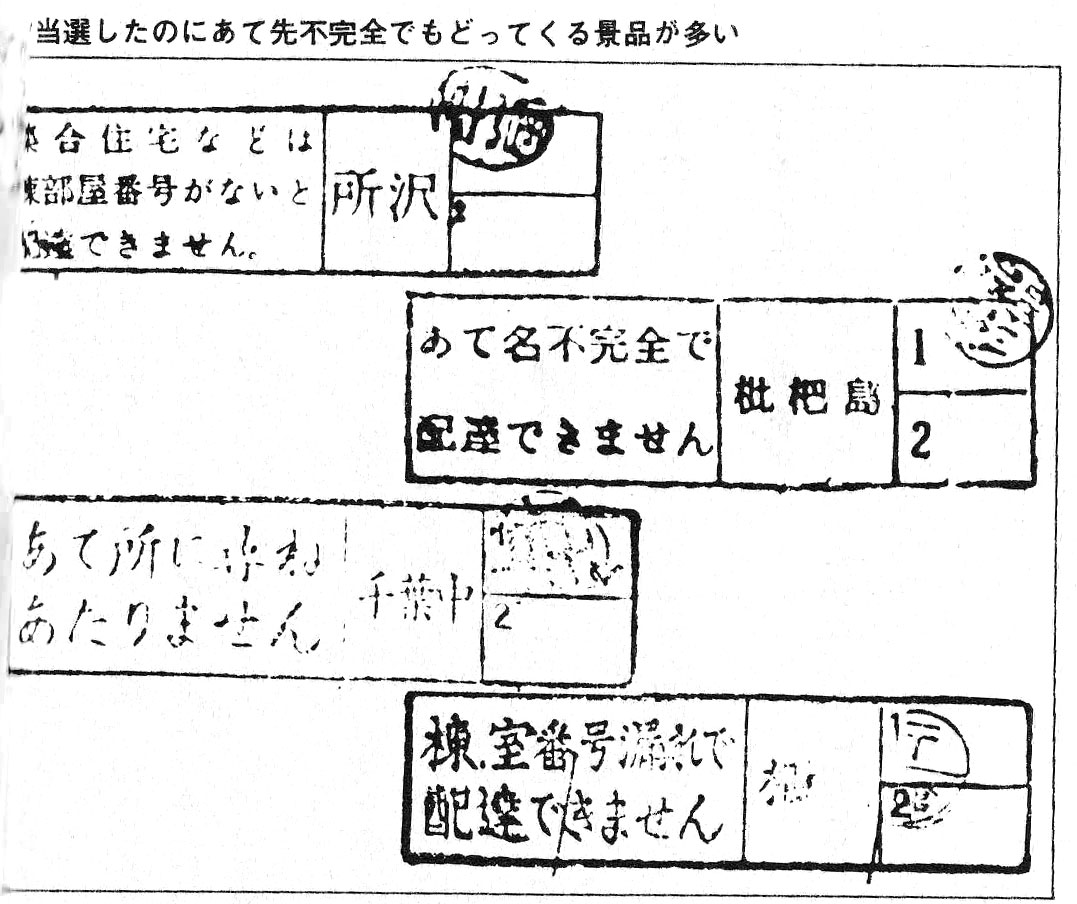 当選したのにあて先不完全でもどってくる景品が多い
集合住宅などは
棟部屋番号がないと
配達できません。
所沢
2
あて名不完全で
配達できません
枇杷島
1
2
あて所に尋ね
あたりません
千葉中
2
棟、室番号漏れで
配達できません
1
2